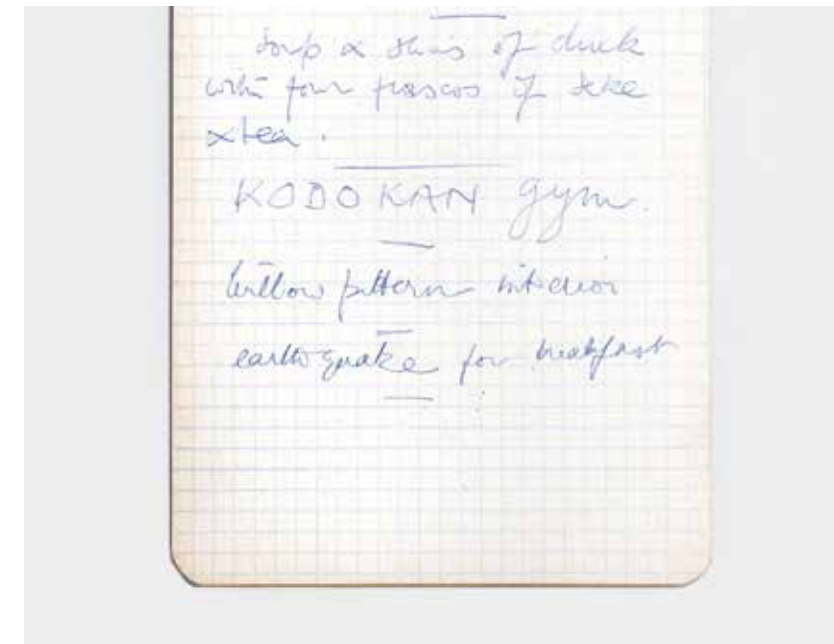 soup & skin of duck
with four fiascos of sake
& tea.
KODOKAN gym.
Willow pattern interior
earthquake for breakfast